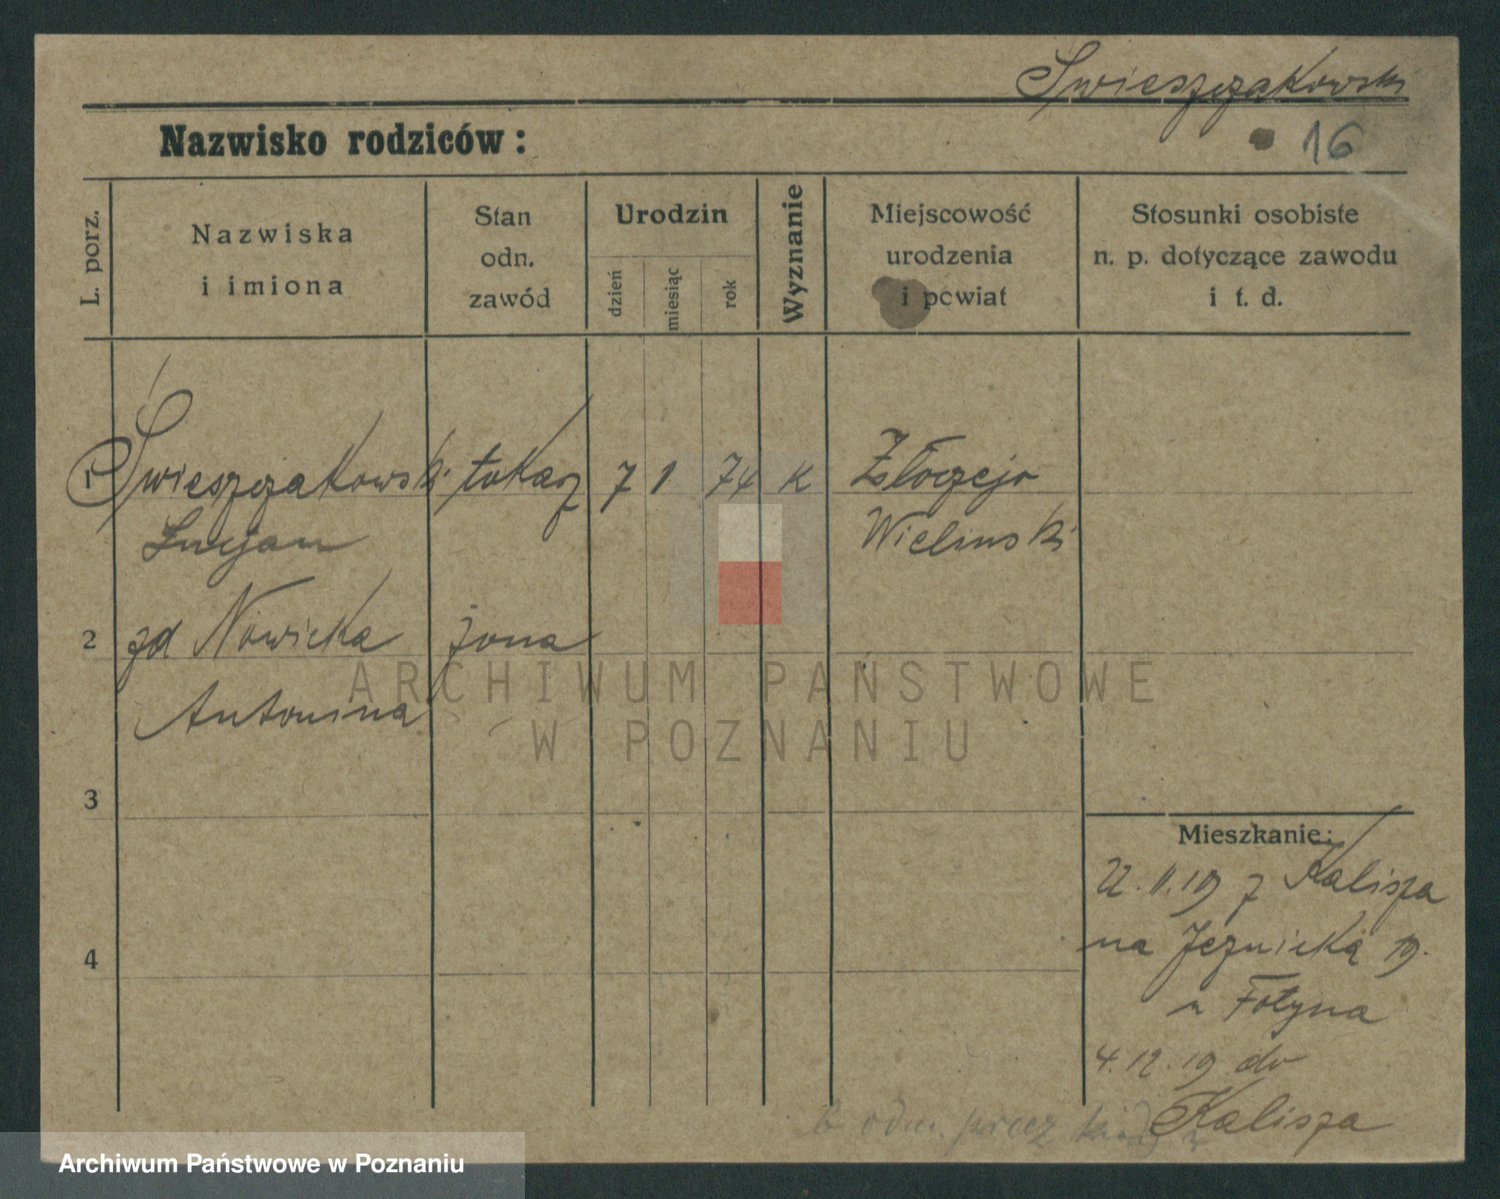 Swieszczakowski
Nazwisko rodziców:
16
L. porz.
Nazwiska
i imiona
Stan
odn.
zawód
Urodzin
dzień
miesiąc
rok
Wyznanie
Miejscowość
urodzenia
i powiat
Stosunki osobiste
n. p. dotyczące zawodu
i t. d.
1 Swieszczakowski tokarz 7 1 74 K
Lucjan Wielunski
2 zd Nowicka żona
Antonina
ARCHIWUM PAŃSTWOWE
W POZNANIU
3
Mieszkanie:
22.11.19 z Kalisza
na 19.
4
u
4.12.19 do
Kalisza
Archiwum Państwowe w Poznaniu